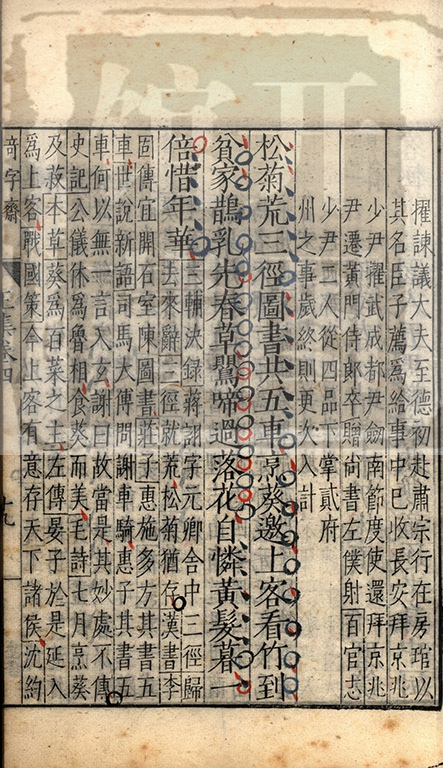 擢諫議大夫至德初赴肅宗行在房琯以
其名臣子薦爲給事中巳收長安拜京兆
少尹擢武成都尹劔南節度使還拜京兆
尹遷黃門侍郎卒贈尚書左僕射百官志
少尹二人從四品下掌貳府
州之事歲終則更次入計
松菊荒三徑圖書共五車烹葵邀上客看竹到
貧家鵲乳先春草鶯啼過落花自憐黃髮暮一
倍惜年華
三輔決錄蔣詡字元卿舍中三徑歸
去來辭三徑就荒松菊猶存漢書李
固傳宜開石室陳圖書莊子惠施多方其書五
車世說新語司馬大傅問謝車騎惠子其書五
車何以無一言入玄謝曰故當是其妙處不傳
史記公儀休爲魯相食葵而美毛詩七月烹葵
及菽本草葵爲百菜之主左傳晏子於是延入
爲上客戰國策今上客有意存天下諸侯沈約
奇字齋
王集卷四
十九